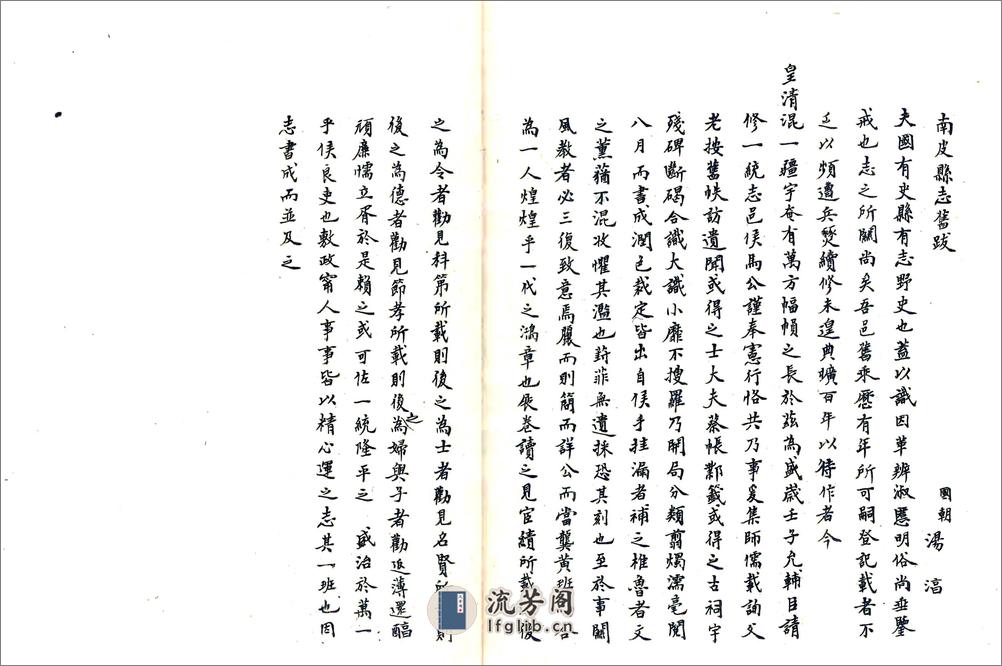 南皮縣志舊跋
國朝 湯 㴞
夫國有史縣有志野史也蓋以識因革辨淑慝明俗尚垂鑒
戒也志之所關尚矣吾邑舊乘歷有年所可嗣登記載者不
乏以頻遭兵燹續修未遑典曠百年以待作者今
皇清混一疆宇奄有萬方幅幀之長於茲為盛歲壬子允輔臣請
修一統志邑侯馬公謹奉憲行恪共乃事爰集師儒載詢父
老按舊帙訪遺聞或得之士大夫蔡帳鄴籤或得之古祠宇
殘碑斷碣合識大識小靡不搜羅乃開局分類翦燭濡毫閱
八月而書成潤色裁定皆出自侯手挂漏者補之椎魯者文
之薰蕕不混收懼其濫也葑菲無遺採恐其刻也至於事關
風教者必三復致意焉麗而則簡而詳公而當龔黃班
為一人煌煌乎一代之鴻章也展卷讀之見宦績所載後
之為令者勸見科第所載則後之為士者勸見名賢所則
後之為德者勸見節孝所載則後之為婦與子者勸返薄還醇
頑廉懦立胥於是賴之或可佐一統隆平之 盛治於萬一
乎侯良吏也敷政甯人事事皆以精心運之志其一班也因
志書成而並及之
流芳閣
lfglib.cn